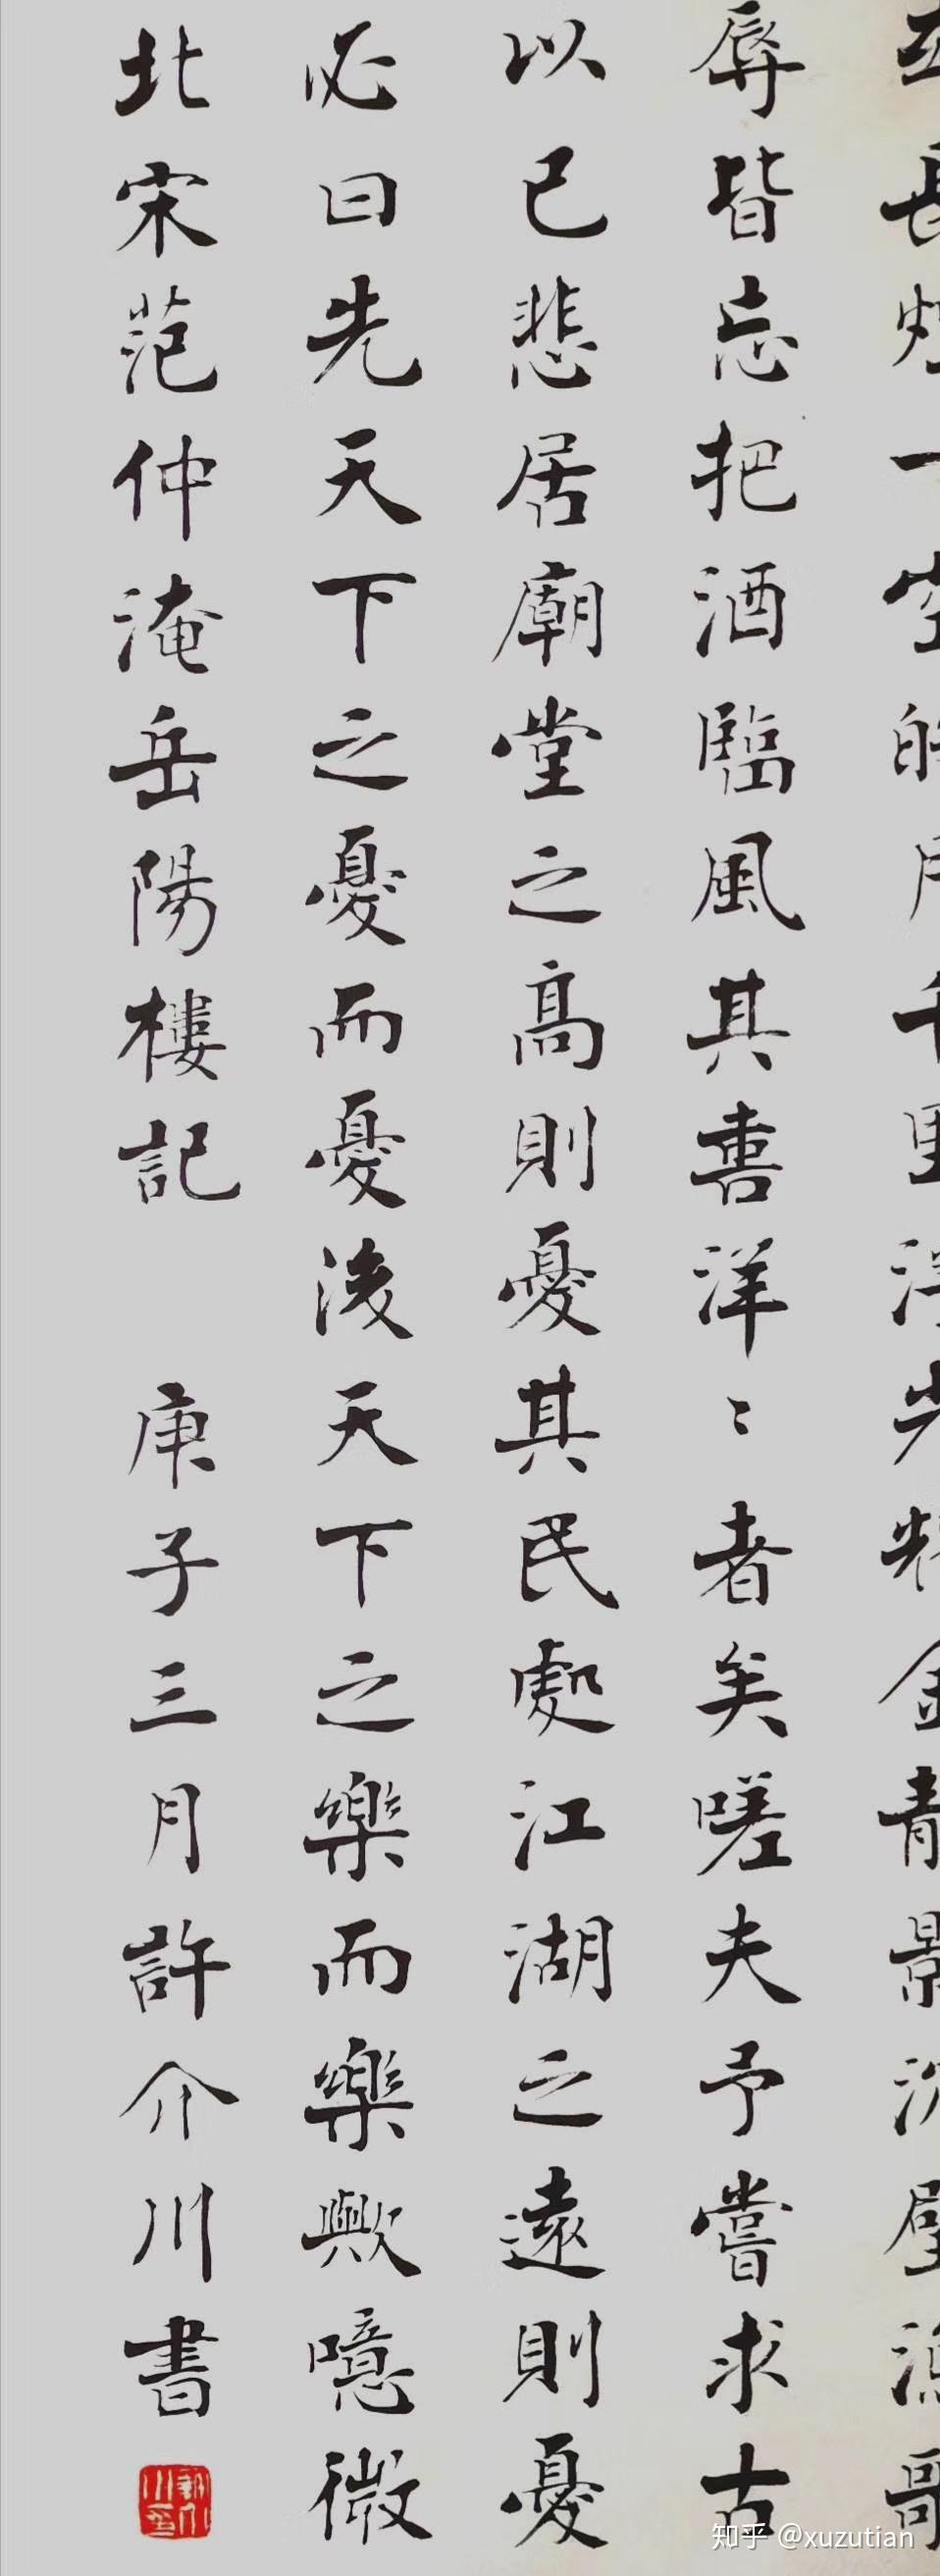 長烟一空皓月千里浮光耀金靜影沉璧漁歌
辱皆忘把酒臨風其喜洋〻者矣嗟夫予嘗求古
以己悲居廟堂之高則憂其民處江湖之遠則憂
必曰先天下之憂而憂後天下之樂而樂歟噫微
北宋范仲淹岳陽樓記 庚子三月許介川書
知乎 @xuzutian